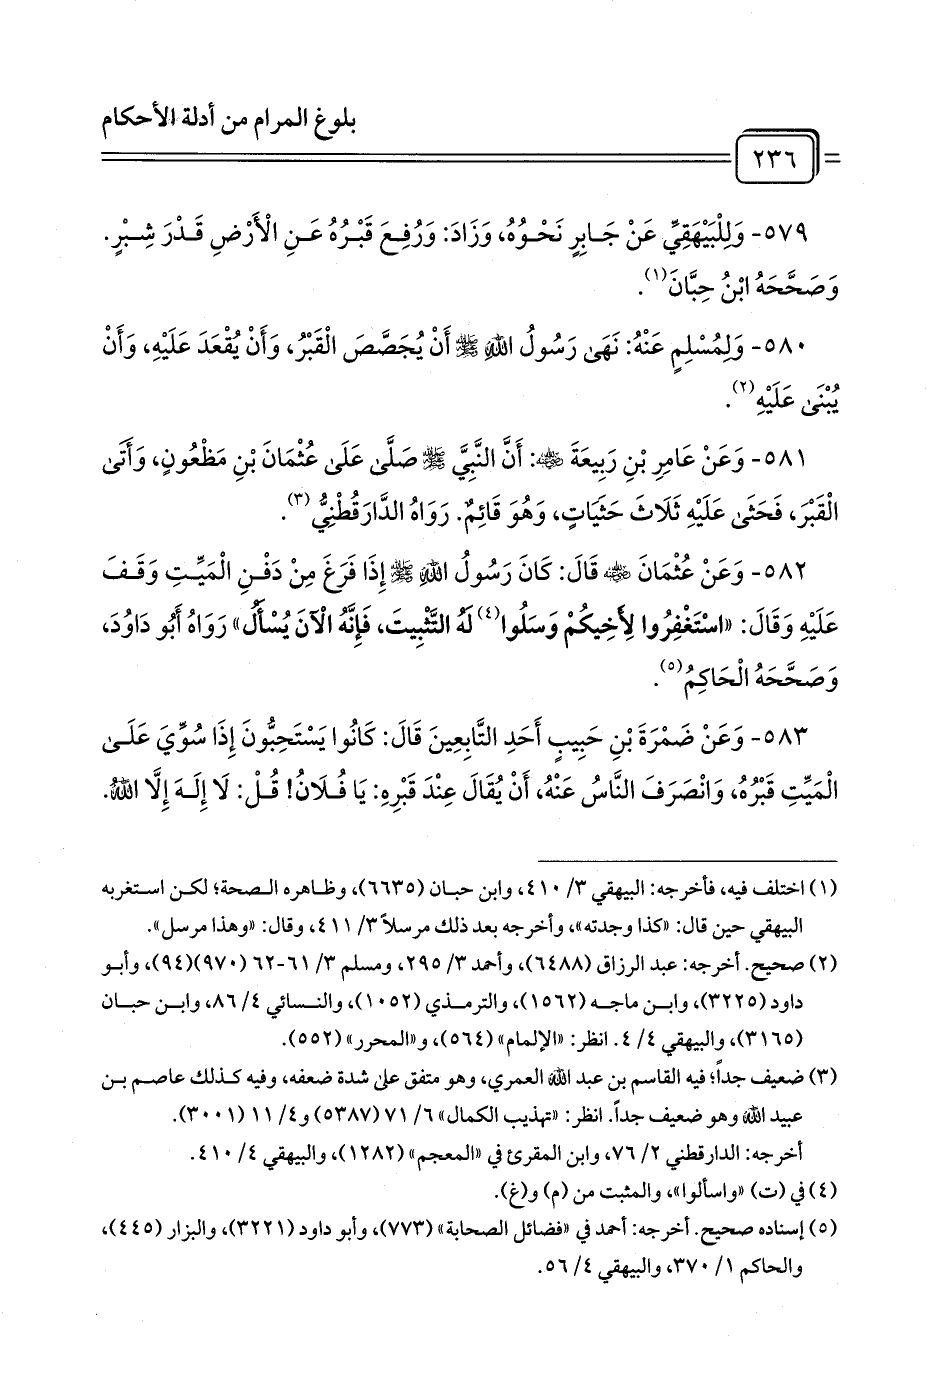 بلوغ المرام من أدلة الأحكام
٢٣٦
٥٧٩- وَلِلْبَيْهَقِيِّ عَنْ جَابِرٍ نَحْوُهُ، وَزَادَ: وَرُفِعَ قَبْرُهُ عَنِ الْأَرْضِ قَدْرَ شِبْرٍ.
وَصَحَّحَهُ ابْنُ حِبَّانَ(١).
٥٨٠- وَلِمُسْلِمٍ عَنْهُ: نَهَى رَسُولُ اللهِ ﷺ أَنْ يُجَصَّصَ الْقَبْرُ، وَأَنْ يُقْعَدَ عَلَيْهِ، وَأَنْ
يُبْنَى عَلَيْهِ(٢).
٥٨١- وَعَنْ عَامِرِ بْنِ رَبِيعَةَ ﵁: أَنَّ النَّبِيَّ ﷺ صَلَّى عَلَى عُثْمَانَ بْنِ مَظْعُونٍ، وَأَتَى
الْقَبْرَ، فَحَثَى عَلَيْهِ ثَلَاثَ حَثَيَاتٍ، وَهُوَ قَائِمٌ. رَوَاهُ الدَّارَقُطْنِيُّ(٣).
٥٨٢- وَعَنْ عُثْمَانَ ﵁ قَالَ: كَانَ رَسُولُ اللهِ ﷺ إِذَا فَرَغَ مِنْ دَفْنِ الْمَيِّتِ وَقَفَ
عَلَيْهِ وَقَالَ: «اسْتَغْفِرُوا لِأَخِيكُمْ وَسَلُوا(٤) لَهُ التَّثْبِيتَ، فَإِنَّهُ الْآنَ يُسْأَلُ» رَوَاهُ أَبُو دَاوُدَ،
وَصَحَّحَهُ الْحَاكِمُ(٥).
٥٨٣- وَعَنْ ضَمْرَةَ بْنِ حَبِيبٍ أَحَدِ التَّابِعِينَ قَالَ: كَانُوا يَسْتَحِبُّونَ إِذَا سُوِّيَ عَلَى
الْمَيِّتِ قَبْرُهُ، وَانْصَرَفَ النَّاسُ عَنْهُ، أَنْ يُقَالَ عِنْدَ قَبْرِهِ: يَا فُلَانُ! قُلْ: لَا إِلَهَ إِلَّا اللهُ.
(١) اختلف فيه، فأخرجه: البيهقي ٣/ ٤١٠، وابن حبان (٦٦٣٥)، وظاهره الصحة؛ لكن استغربه
البيهقي حين قال: «كذا وجدته»، وأخرجه بعد ذلك مرسلاً ٣/ ٤١١، وقال: «وهذا مرسل».
(٢) صحيح. أخرجه: عبد الرزاق (٦٤٨٨)، وأحمد ٣/ ٢٩٥، ومسلم ٣/ ٦١-٦٢ (٩٧٠)(٩٤)، وأبو
داود (٣٢٢٥)، وابن ماجه (١٥٦٢)، والترمذي (١٠٥٢)، والنسائي ٤/ ٨٦، وابن حبان
(٣١٦٥)، والبيهقي ٤/ ٤. انظر: «الإلمام» (٥٦٤)، و«المحرر» (٥٥٢).
(٣) ضعيف جداً؛ فيه القاسم بن عبد الله العمري، وهو متفق على شدة ضعفه، وفيه كذلك عاصم بن
عبيد الله وهو ضعيف جداً. انظر: «تهذيب الكمال» ٦/ ٧١ (٥٣٨٧) و٤/ ١١ (٣٠٠١).
أخرجه: الدارقطني ٢/ ٧٦، وابن المقرئ في «المعجم» (١٢٨٢)، والبيهقي ٤/ ٤١٠.
(٤) في (ت) «واسألوا»، والمثبت من (م) و(غ).
(٥) إسناده صحيح. أخرجه: أحمد في «فضائل الصحابة» (٧٧٣)، وأبو داود (٣٢٢١)، والبزار (٤٤٥)،
والحاكم ١/ ٣٧٠، والبيهقي ٤/ ٥٦.